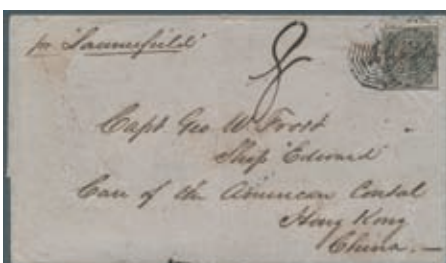 pr "Lancefield"
8
Capt Geo W. Frost
Ship "Edward"
Care of the American Consal
Hong Kong
China.—